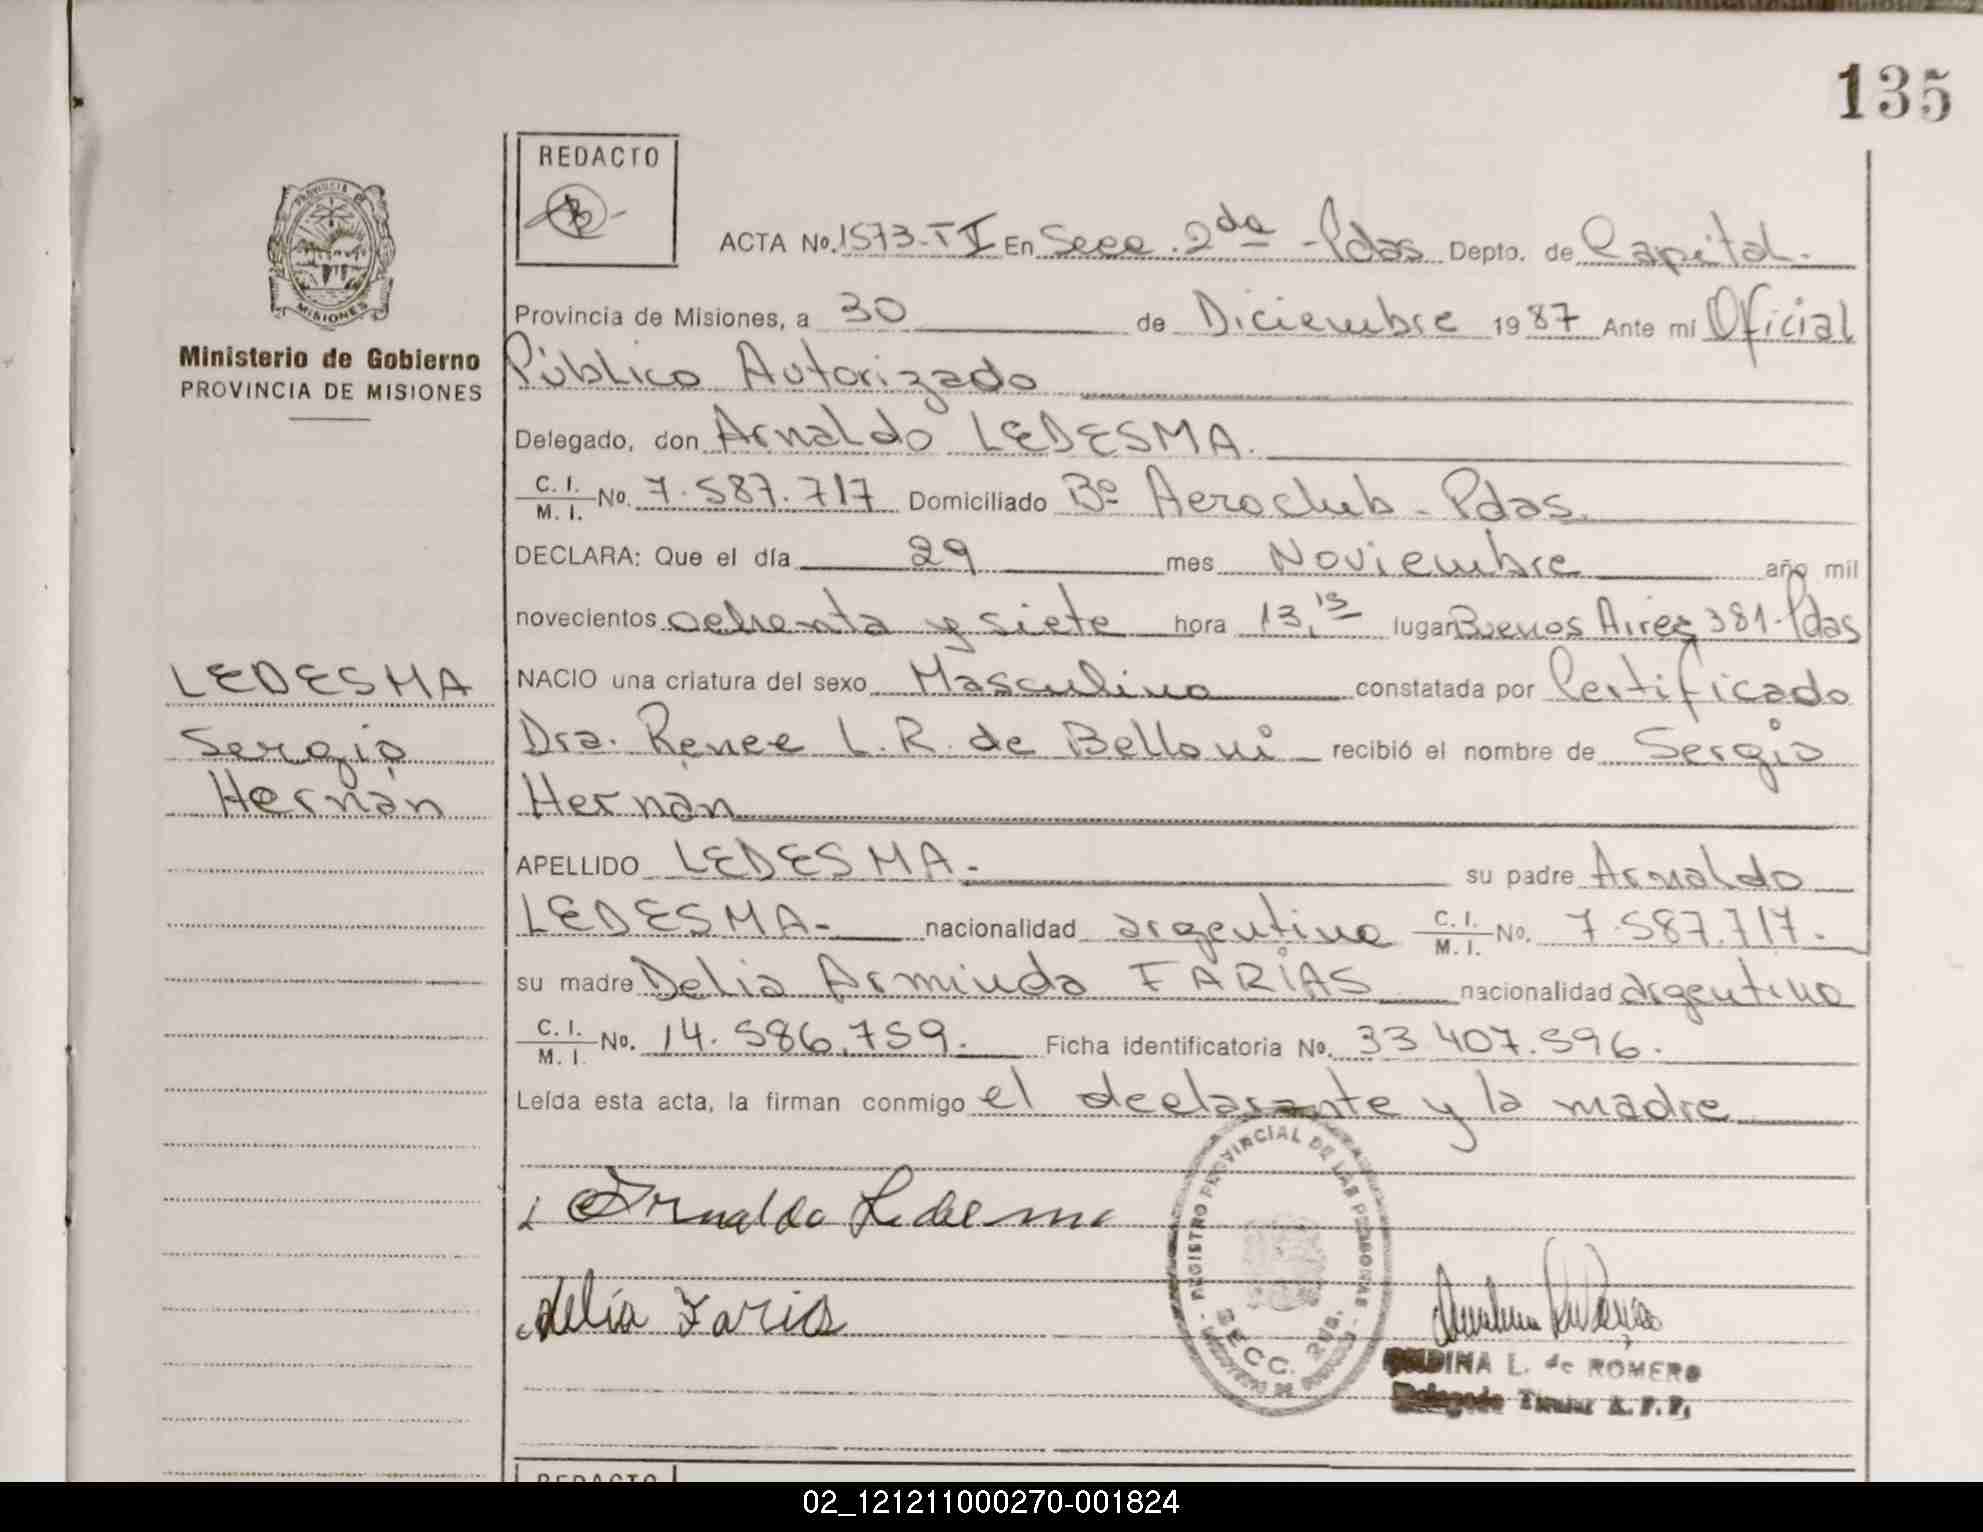 135
REDACTO
PROVINCIA DE
MISIONES
Ministerio de Gobierno
PROVINCIA DE MISIONES
ACTA No. 1573-T I En Secc. 2da - Pdas Depto. de Capital.
Provincia de Misiones, a 30 de Diciembre 1987 Ante mi Oficial
Público Autorizado
Delegado, don Arnaldo LEDESMA.
C. I. / M. I. No. 7.587.717 Domiciliado Bº Aeroclub - Pdas.
DECLARA: Que el día 29 mes Noviembre año mil
novecientos ochenta y siete hora 13,15 lugar Buenos Aires 381-Pdas
LEDESMA
Sergio
Hernán
NACIO una criatura del sexo Masculino constatada por Certificado
Dra. Renee L. R. de Belloni recibió el nombre de Sergio
Hernan
APELLIDO LEDESMA. su padre Arnaldo
LEDESMA- nacionalidad argentina C. I. / M. I. No. 7.587.717.
su madre Delia Arminda FARIAS nacionalidad argentina
C. I. / M. I. No. 14.586.759. Ficha identificatoria No. 33 407.596.
Leída esta acta, la firman conmigo el declarante y la madre
Arnaldo Ledesma
Delia Farias
REGISTRO PROVINCIAL DE LAS PERSONAS
SECC. 2da.
L. de ROMERO
Delegado Titular R. P. P.
REDACTO
02_121211000270-001824